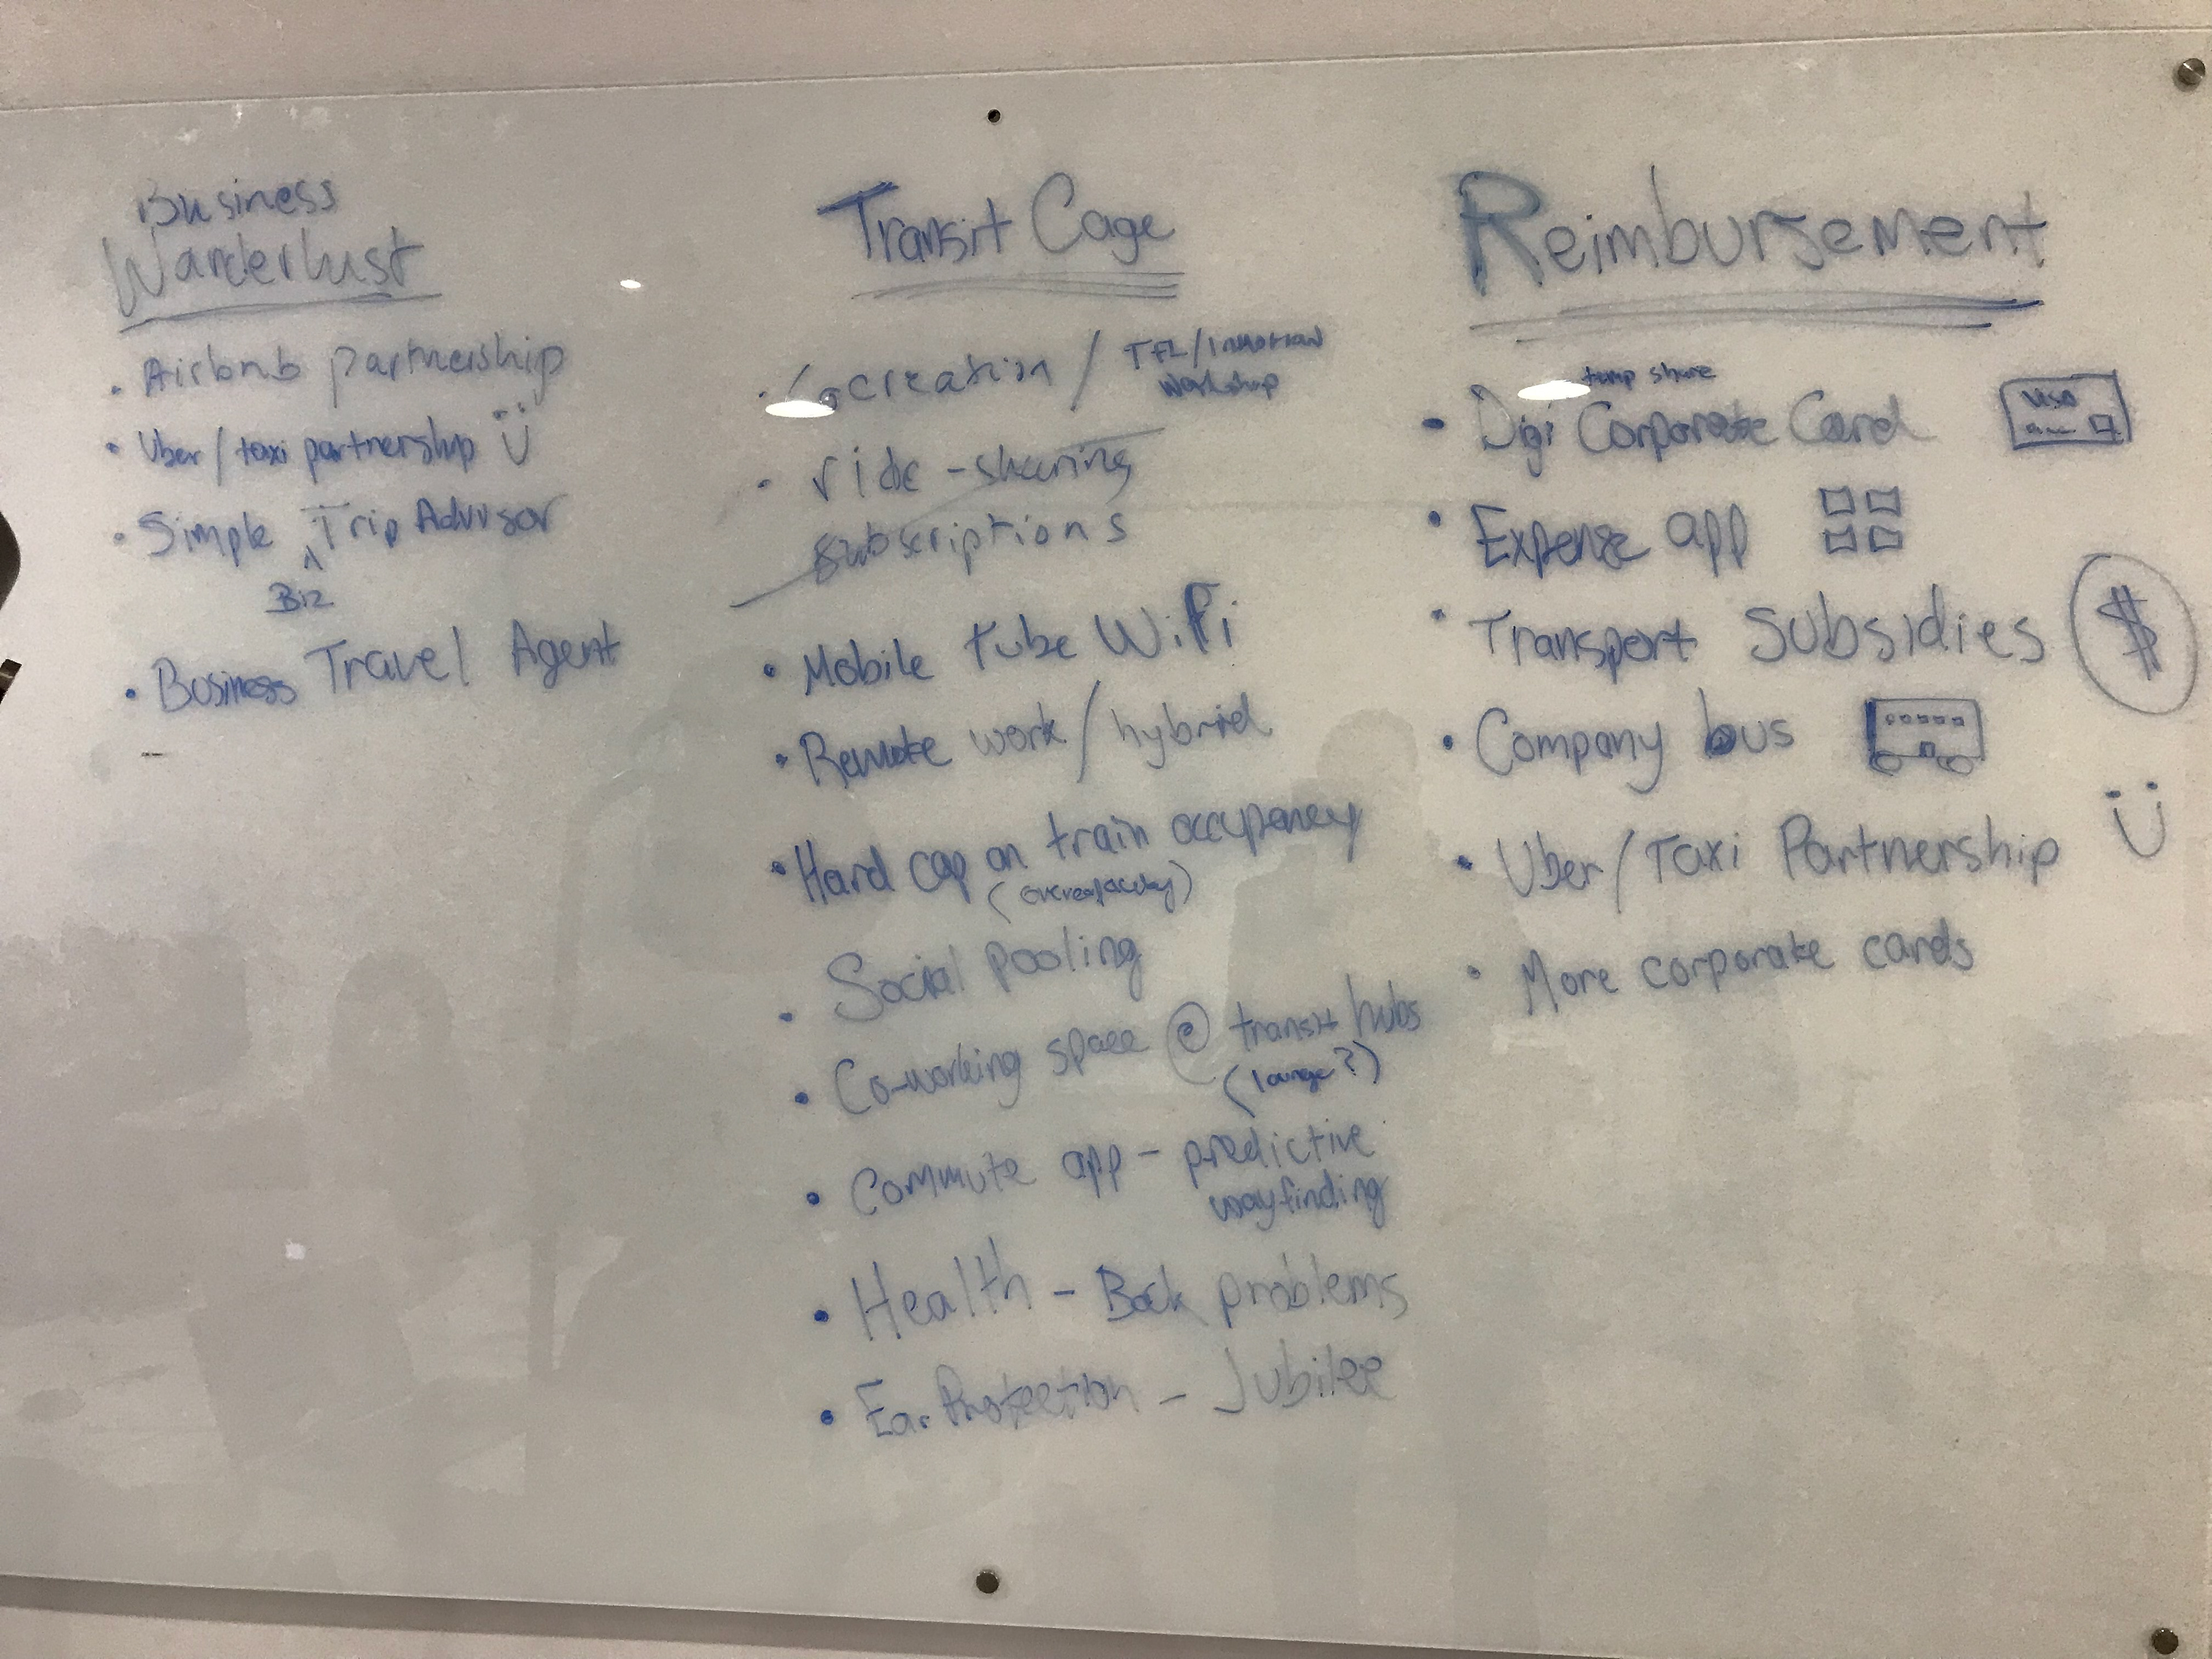 Business
Wanderlust
• Airbnb partnership
• Uber/taxi partnership Ü
• Simple ^ Trip Advisor
Biz
• Business Travel Agent
Transit Cage
• Cocreation / TFL/
Workshop
• ride-sharing
subscriptions
• Mobile tube WiFi
• Remote work/hybrid
• Hard cap on train occupancy
(overcapacity)
• Social pooling
• Co-working space @ transit hubs
(lounge?)
• Commute app - predictive
wayfinding
• Health - Back problems
• Ear Protection - Jubilee
Reimbursement
temp share
• Digi Corporate Card
VISA
• Expense app
• Transport Subsidies $
• Company bus
• Uber/Taxi Partnership Ü
• More corporate cards